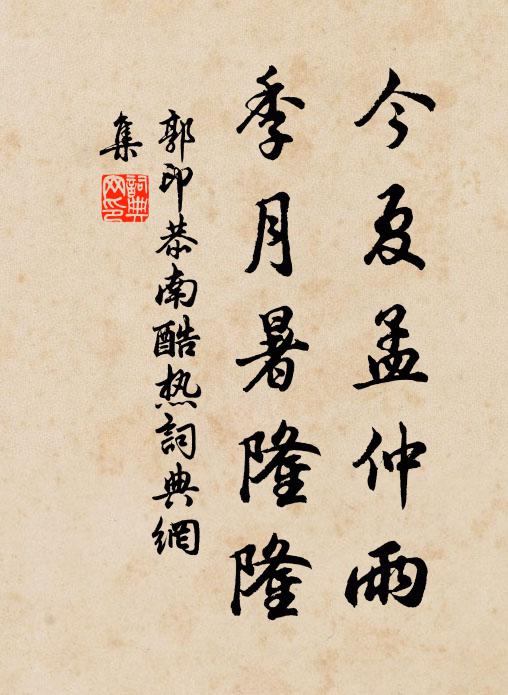 今夏孟仲雨
季月暑隆隆
郭印恭南酷热詞典網
集
詞典
网印